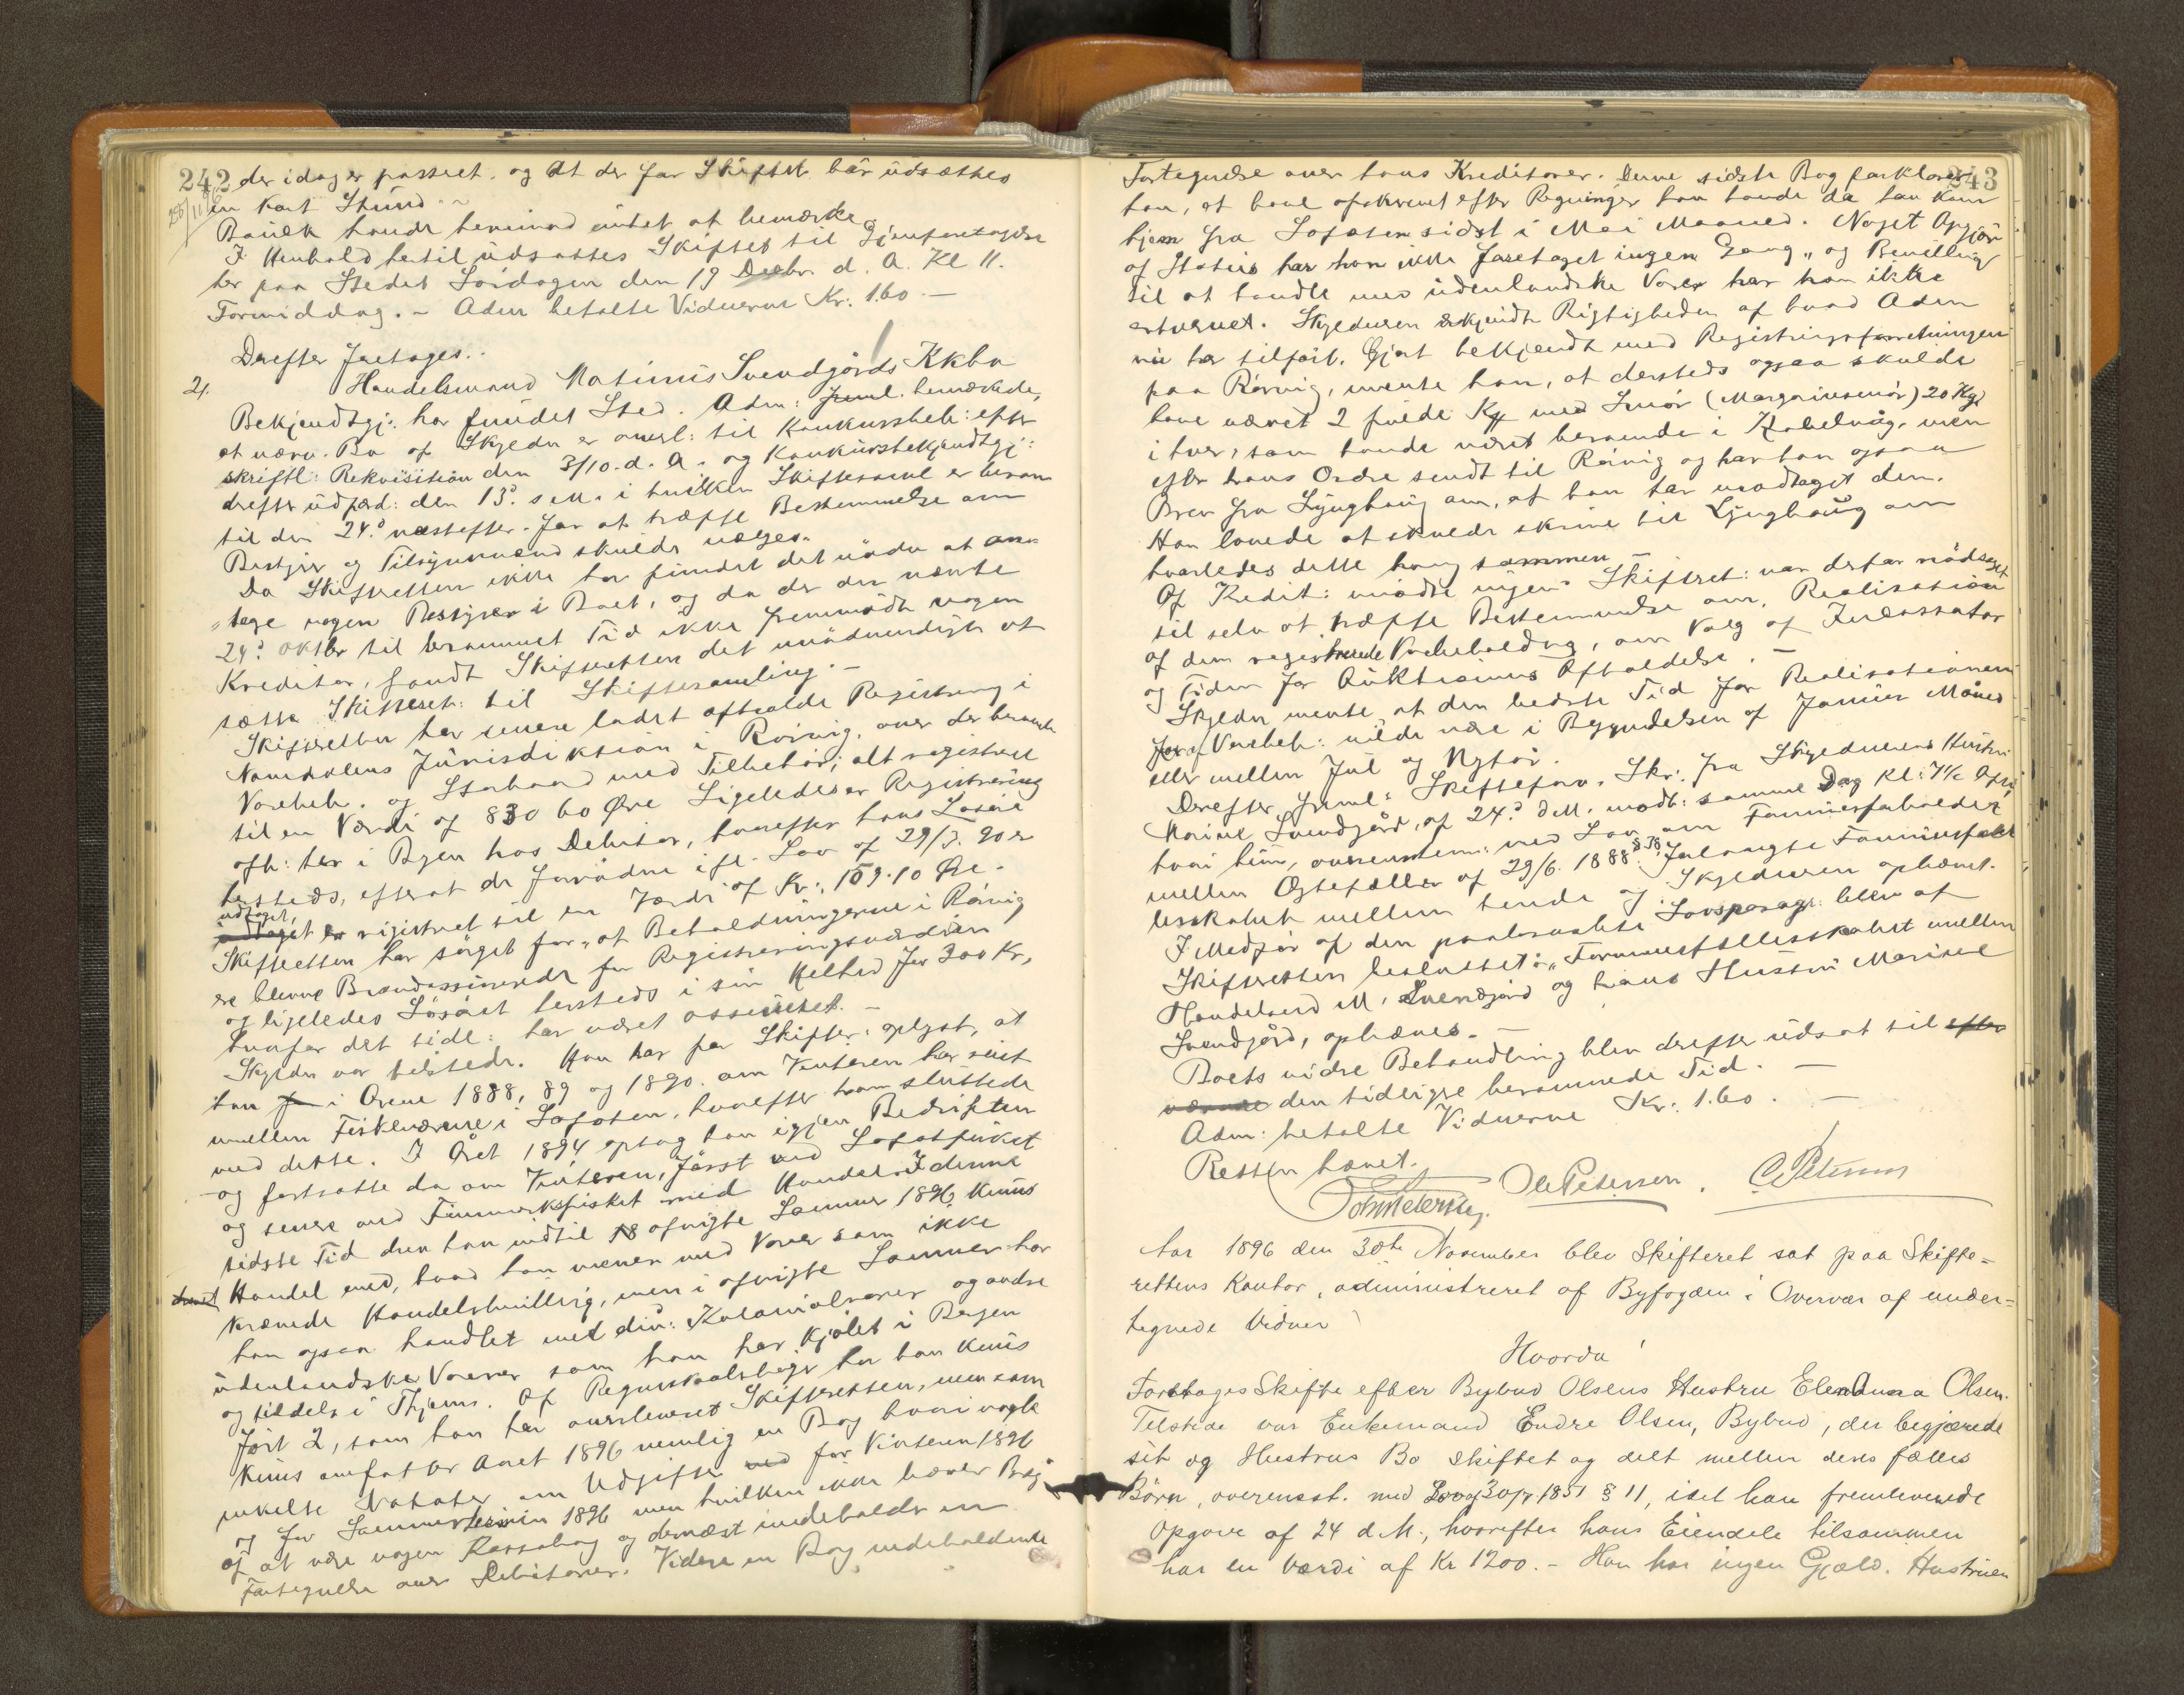 242 der idag er passeret, og at der for Skiftet bør udsættes
28/11 96
en kort Stund. -
Rauck havde herimod intet at bemærke.
I Henhold hertil udsattes Skiftet til Gjenforetagelse
her paa Stedet Lördagen den 19 Decbr d. A. Kl 11.
Formiddag. - Adm betalte Vidnerne Kr: 1.60 -
Derefter foretoges..
2. Handelsmand Matinus Svendgårds Kkbo
Bekjendtgj: har fundet Sted. Adm: freml. bemærkede,
at nærv. Bo af Skyldn er overl: til Konkursbeh: efter
skriftl: Rekvisition den 3/10. d. A. og Konkursbekjendtgj:
derefter udfærd: den 13d. s. M. i hvilken Skiftesaml er beram
til den 24d. næstefter. for at træffe Bestemmelse om
Bestyrer og Tilsynsmænd skulde vælges.
Da Skifteretten ikke har fundet det nödv at an-
"tage nogen Bestyrer i Boet, og da der den nævnte
24d. oktbr til berammet Tid ikke fremmödte nogen
Kreditor, fandt Skifteretten det unödvendigt at
sætte Skifteret: til Skiftesamling. -
Skifteretten har senere ladet afholde Registrering i
Namdalens Jurisdiktion i Rörvig, over der beroende
Varebeh. og Storbaad med Tilbehör; alt registreret
til en Værdi af 830 60 Øre Ligeledes er Registrering
afh: her i Byen hos Debitor, hvorefter hans Lösöre
hersteds, efterat de fornödne ifl. Lov af 29/3. 90 er
udtaget, er registreret til en Værdi af Kr: 109.10 Øre.
Skifteretten har sörget for, at Beholdningerne i Rörvig
ere blevne Brandassurerede for Registreringsværdien
og ligeledes Lösöret hersteds i sin Helhed for 300 Kr,
hvorfor det tidl: har været assureret. -
Skyldn var tilstede. Han har for Skifter: oplyst, at
han i Årene 1888, 89 og 1890. om Vinteren har reist
mellem Fiskeværene i Lofoten, hvorefter han sluttede
med dette. I Året 1894 optog han igjen Bedriften
- og fortsatte da om Vinteren, först ved Lofotfisket
og senere ved Finmarksfisket med Handel. I denne
sidste Tid drev han indtil afvigte Sommer 1896 kuns
Handel med, hvad han mener med Varer som ikke
krævede Handelsbevilling, men i afvigte Sommer har
han ogsaa handlet med div: Kolonialvarer og andre
udenlandske Varer som han har kjöbt i Bergen
og tildels i Thjem. Af Regnskabsböger har han kuns
fört 2, som han har overleveret Skifteretten, men som
kuns omfatter Aaret 1896 nemlig en Bog hvori nogle
enkelte Notater om Udgifter for Vinteren 1896
og for Sommerterminen 1896 men hvilken ikke bærer Præg
af at være nogen Kassabog og dernæst indeholder en
Fortegnelse over Debitorer. Videre en Bog indeholdende
243
Fortegnelse over hans Kreditorer. Denne sidste Bog forklarer
han, at have afskrevet efter Regninger han havde da han kom
hjem fra Lofoten sidst i Mai Maaned. Noget Opgjör
af Status har han ikke foretaget ingen Gang, og Bevilling
til at handle med udenlandske Varer har han ikke
erhvervet. Skyldneren erkjendte Rigtigheden af hvad Adm
nu har tilfört. Gjort bekjendt med Registreringsforretningen
paa Rörvig, mente han, at dersteds ogsaa skulde
have været 2 fulde Kgg med Smör (Margarinsmör) 20 Kg.
ihver, som havde været beroende i Kabelvåg, men
efter hans Ordre sendt til Rörvig og har han ogsaa
Brev fra Lynghaug om, at han har modtaget dem.
Han lovede at skulde skrive til Lynghaug om
hvorledes dette hang sammen -
Af Kredit: mödte ingen. Skifteret: var derfor nödsaget
til selv at træffe Bestemmelse om, Realisation
af den registrerede Varebeholdng, om Valg af Inkassator
og Tiden for Auktionens Afholdelse. -
Skyldn mente at den bedste Tid for Realisationen
af Varebeh: vilde være i Begyndelsen af Januar Måned
eller mellem Jul og Nytår.
Derefter freml: Skifteforv. Skr: fra Skyldnerens Hustru
Marine Svendgård, af 24d. d M. modt: samme Dag Kl: 7½ Aften
hvori hun, overensstem: med Lov om Formuesforholdet
mellem Ægtefæller af 29/6. 1888 § 38, forlangte Formuesfæl
lesskabet mellem hende og Skyldneren ophævet.
I Medför af den paaberaabte Lovsparagr: blev af
Skifteretten besluttet: "Formuesfællesskabet mellem
Handelsmd M. Svendgård og hans Hustru Marine
Svendgård, ophæves. -
Boets videre Behandling blev derefter udsat til
den tidligere berammede Tid. -
Adm: betalte Vidnerne Kr: 1.60. -
Retten hævet.
Ole Petersen. C Petersen
Aar 1896 den 30te November blev Skifteret sat paa Skifte=
rettens Kontor, administreret af Byfogden i Overvær af under=
tegnede Vidner
Hvorda'
Foretoges Skifte efter Bybud Olsens Hustru Elen Anna Olsen.
Tilstede var Enkemand Endre Olsen, Bybud, der begjærede
sit og Hustrus Bo skiftet og delt mellem deres fælles
Börn, overensst. med Lov af 30/7. 1851 § 11, idet han fremleverede
Opgave af 24 d. M., hvorefter hans Eiendele tilsammen
har en Værdi af Kr 1200. - Han har ingen Gjæld. Hustruen